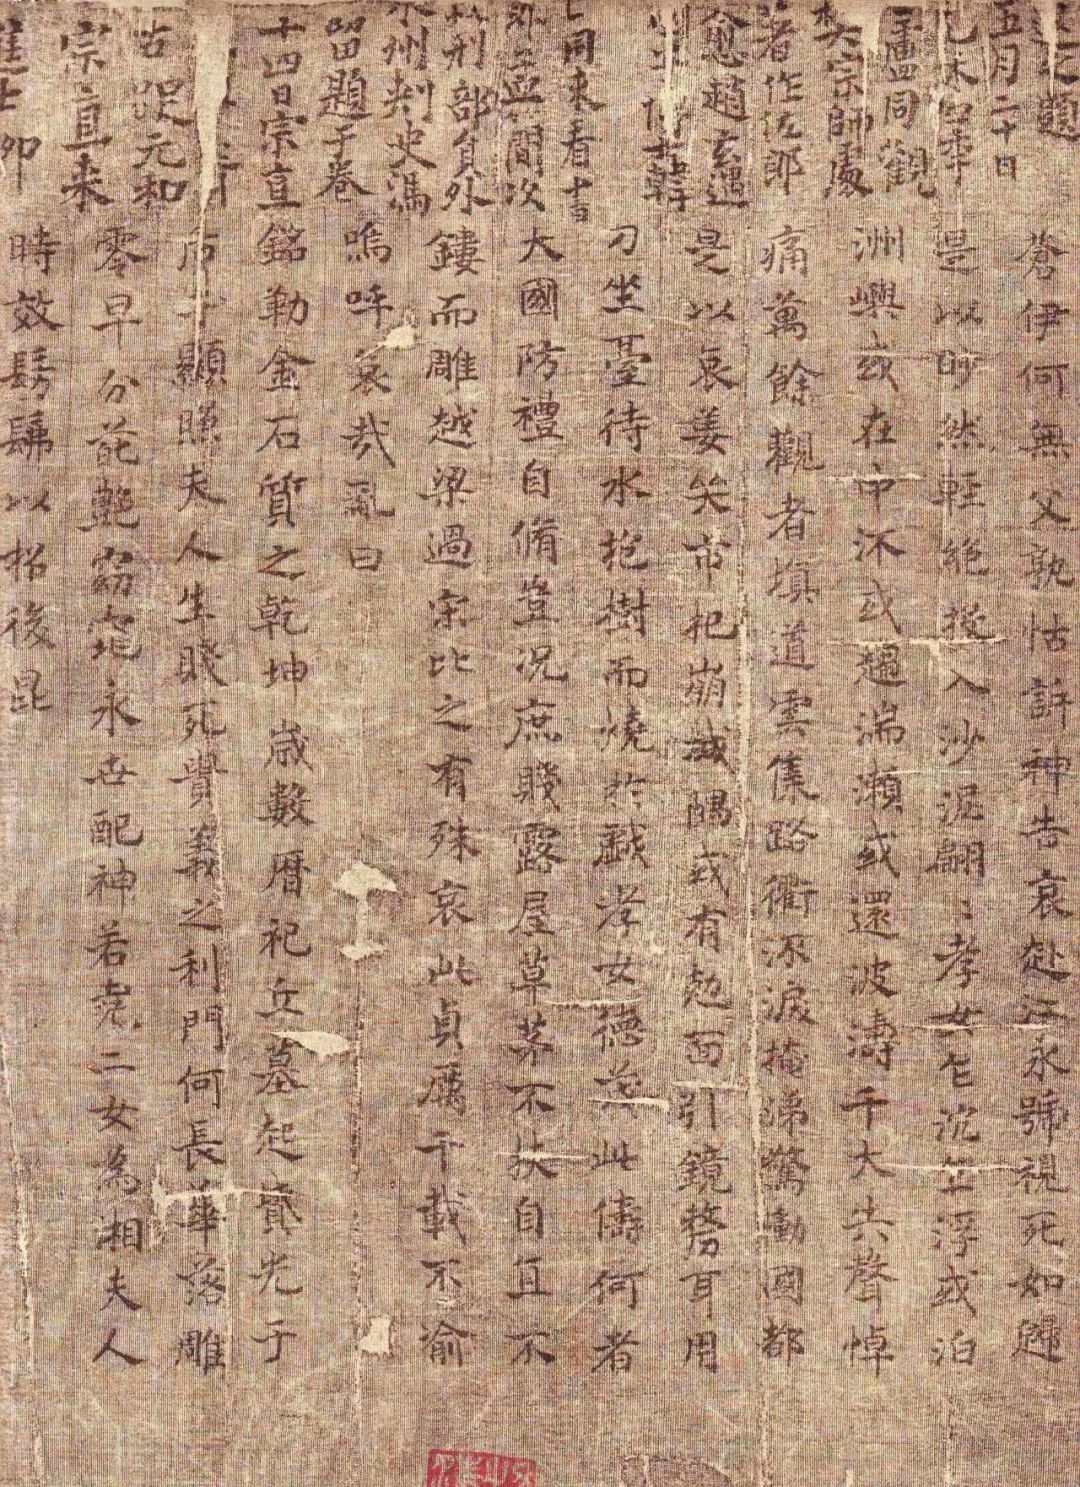 之題
五月二十日
同觀
宗師處
著作佐郎
愈趙玄遇
韓
同來看書
簡次
刑部員外
州刺史馮
留題于卷
十四日宗直
元和
宗直来
蒼伊何無父孰怙訴神告哀赴江永號視死如歸
是以眇然輕絕投入沙泥翩〻孝女乍沉乍浮或泊
洲嶼或在中沠或趨湍瀨或還波濤千夫失聲悼
痛萬餘觀者填道雲集路衢泝淚掩涕驚動國都
是以哀姜哭市杞崩城隅或有剋面引鏡剺耳用
刀坐臺待水抱樹而燒於戲孝女德茂此儔何者
大國防禮自脩豈况庶賤露屋草茅不扶自直不
鏤而雕越梁過宋比之有殊哀此貞厲千載不渝
嗚呼哀哉亂曰
銘勒金石質之乾坤歲數曆祀丘墓起墳光于
顯照夫人生賤死貴義之利門何長華落雕
零早分葩艷窈窕永世配神若堯二女為湘夫人
時效髣髴以招後昆